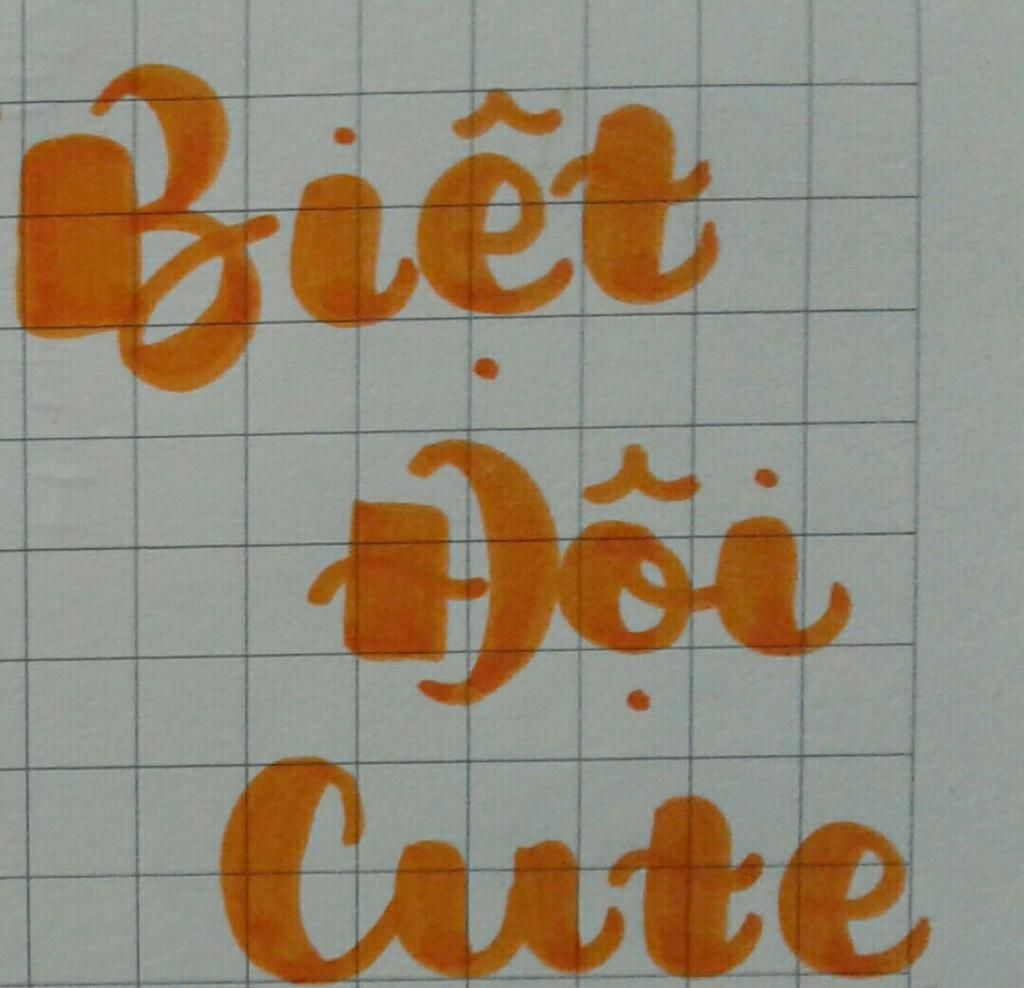 Biệt
Đội
Cute